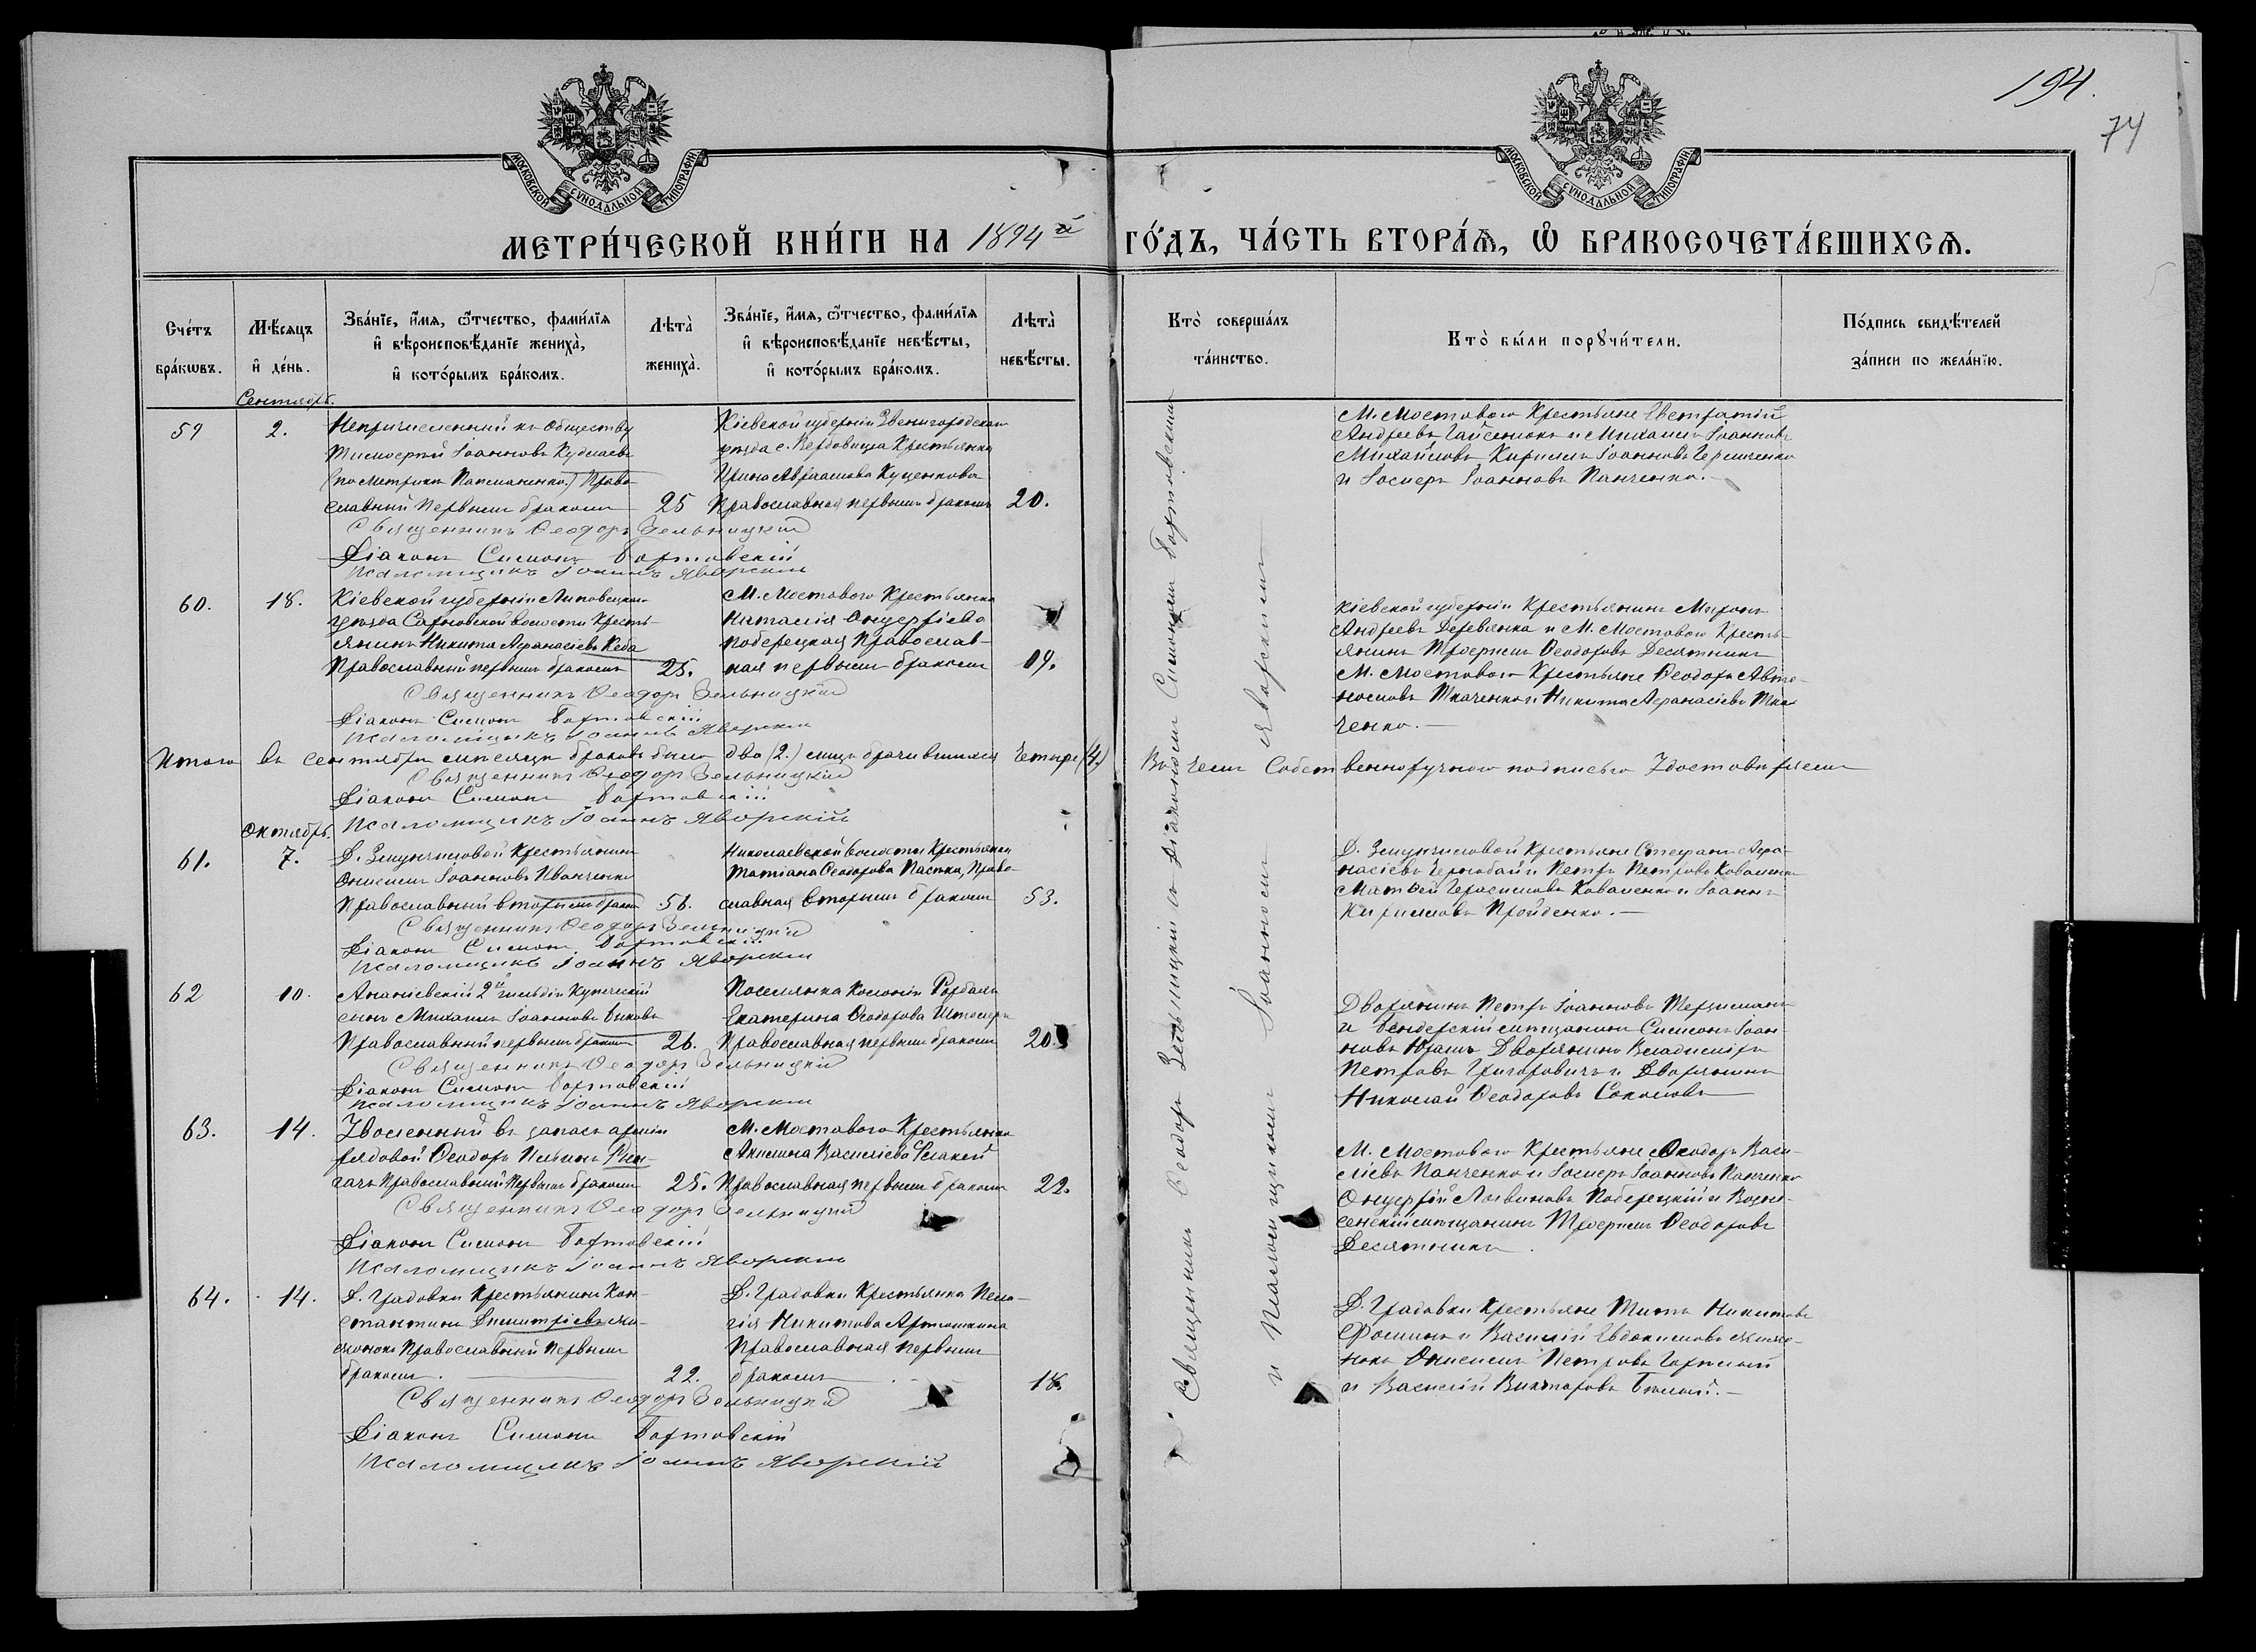 194.
74
МОСКОВСКОЙ СѴНОДАЛЬНОЙ ТИПОГРАФІИ
МОСКОВСКОЙ СѴНОДАЛЬНОЙ ТИПОГРАФІИ
МЕТРИ́ЧЕСКОЙ КНИ́ГИ НА 1894й ГО́ДЪ, ЧА́СТЬ ВТОРА́Ѧ, Ѽ БРАКОСОЧЕТА́ВШИХСѦ.
Сче́тъ бра́кѡвъ.
Мѣ́сѧцъ и҆ де́нь.
Зва́нїе, и҆́мѧ, ѻ҆́тчество, фами́лїѧ
и҆ вѣроисповѣ́данїе жениха̀,
и҆ кото́рымъ бра́комъ.
Лѣта̀ жениха̀.
Зва́нїе, и҆́мѧ, ѻ҆́тчество, фами́лїѧ
и҆ вѣроисповѣ́данїе невѣ́сты,
и҆ кото́рымъ бра́комъ.
Лѣта̀ невѣ́сты.
Кто̀ соверша́лъ та́инство.
Кто̀ бы́ли порꙋчи́тели.
По́дпись свидѣ́телей за́писи по жела́нїю.
Сентябрь.
59
2.
Непричисленный къ обществу
Тимофей Іоанновъ
(по метрикѣ) Право
славный первымъ бракомъ
25
Кіевской губерніи Звенигородскаго
уѣзда с. Крестьянка
Ирина Авраамова Куценкова
Православная первымъ бракомъ
20.
М. Мостового Крестьяне Евстратій
Андреевъ и Михаилъ Іоанновъ
Михайловъ Кириллъ Іоанновъ
и Іосифъ Іоанновъ Панченко.
Священникъ Ѳеодоръ Зельницкій
Діаконъ Симонъ Бортовскій
Псаломщикъ Іоаннъ Яворскій
60.
18.
Кіевской губерніи Липовецкаго
уѣзда волости Кресть-
янинъ Никита Аѳанасіевъ Кеба
Православный первымъ бракомъ
25.
М. Мостового Крестьянка
Наталія Онуфріева
Поберецкая Православ-
ная первымъ бракомъ
19.
Кіевской губерніи Крестьянинъ Миронъ
Андреевъ Деревянка и М. Мостового Кресть-
янинъ Трофимъ Ѳеодоровъ Десятникъ
М. Мостового Крестьяне Ѳеодоръ Авто-
номовъ Ткаченко и Никита Аѳанасіевъ Тка
ченко.
Священникъ Ѳеодоръ Зельницкій
Діаконъ Симонъ Бортовскій
Псаломщикъ Іоаннъ Яворскій
Итого въ Сентябрѣ мѣсяцѣ браковъ было два (2.) лицъ брачившихся четыре (4.) Въ чемъ Собственноручною подписью Удостовѣряемъ
Священникъ Ѳеодоръ Зельницкій
Діаконъ Симонъ Бортовскій
Псаломщикъ Іоаннъ Яворскій
Октябрь.
61.
7.
Д. Крестьянинъ
Онисимъ Іоанновъ Иванченко
Православный вторымъ бракомъ
56.
Николаевской волости Крестьянка
Татіана Ѳеодорова Право-
славная вторымъ бракомъ
53.
Д. Крестьяне Стефанъ Аѳа-
насіевъ и Петръ Петровъ Коваленко
Матѳей Герасимовъ Коваленко и Іоаннъ
Кирилловъ Пройденко.
Священникъ Ѳеодоръ Зельницкій
Діаконъ Симонъ Бортовскій
Псаломщикъ Іоаннъ Яворскій
62
10.
Ананіевскій 2й гильдіи Купеческій
сынъ Михаилъ Іоанновъ Быковъ
Православный первымъ бракомъ
26.
Поселянка Колоніи
Екатерина Ѳеодорова
Православная первымъ бракомъ
20.
Дворянинъ Петръ Іоанновъ
и Бендерскій мѣщанинъ Симеонъ Іоан-
новъ Дворянинъ Владиміръ
Петровъ Григоровичъ и Дворянинъ
Николай Ѳеодоровъ Соколовъ
Священникъ Ѳеодоръ Зельницкій
Діаконъ Симонъ Бортовскій
Псаломщикъ Іоаннъ Яворскій
63.
14.
Уволенный въ запасъ арміи
рядовой Ѳеодоръ
Православный первымъ бракомъ
25.
М. Мостового Крестьянка
Акилина Василіева
Православная первымъ бракомъ
22.
М. Мостового Крестьяне Ѳеодоръ Васи-
ліевъ Панченко и Іосифъ Іоанновъ Панченко
Онуфрій Логвиновъ Поберецкій и Возне-
сенскій мѣщанинъ Трофимъ Ѳеодоровъ
Десятникъ.
Священникъ Ѳеодоръ Зельницкій
Діаконъ Симонъ Бортовскій
Псаломщикъ Іоаннъ Яворскій
64.
14.
Д. Градовки Крестьянинъ Кон-
стантинъ Димитріевъ
Православный Первымъ
бракомъ.
22.
Д. Градовки Крестьянка Пела-
гія Никитова
Православная первымъ
бракомъ
18.
Д. Градовки Крестьяне Титъ Никитовъ
Ѳоминъ и Василій Евдокимовъ
Онисимъ Петровъ
и Василій Викторовъ
Священникъ Ѳеодоръ Зельницкій
Діаконъ Симонъ Бортовскій
Псаломщикъ Іоаннъ Яворскій
Священникъ Ѳеодоръ Зельницкій съ Діакономъ Симономъ Бортовскимъ
и Псаломщикомъ Іоанномъ Яворскимъ